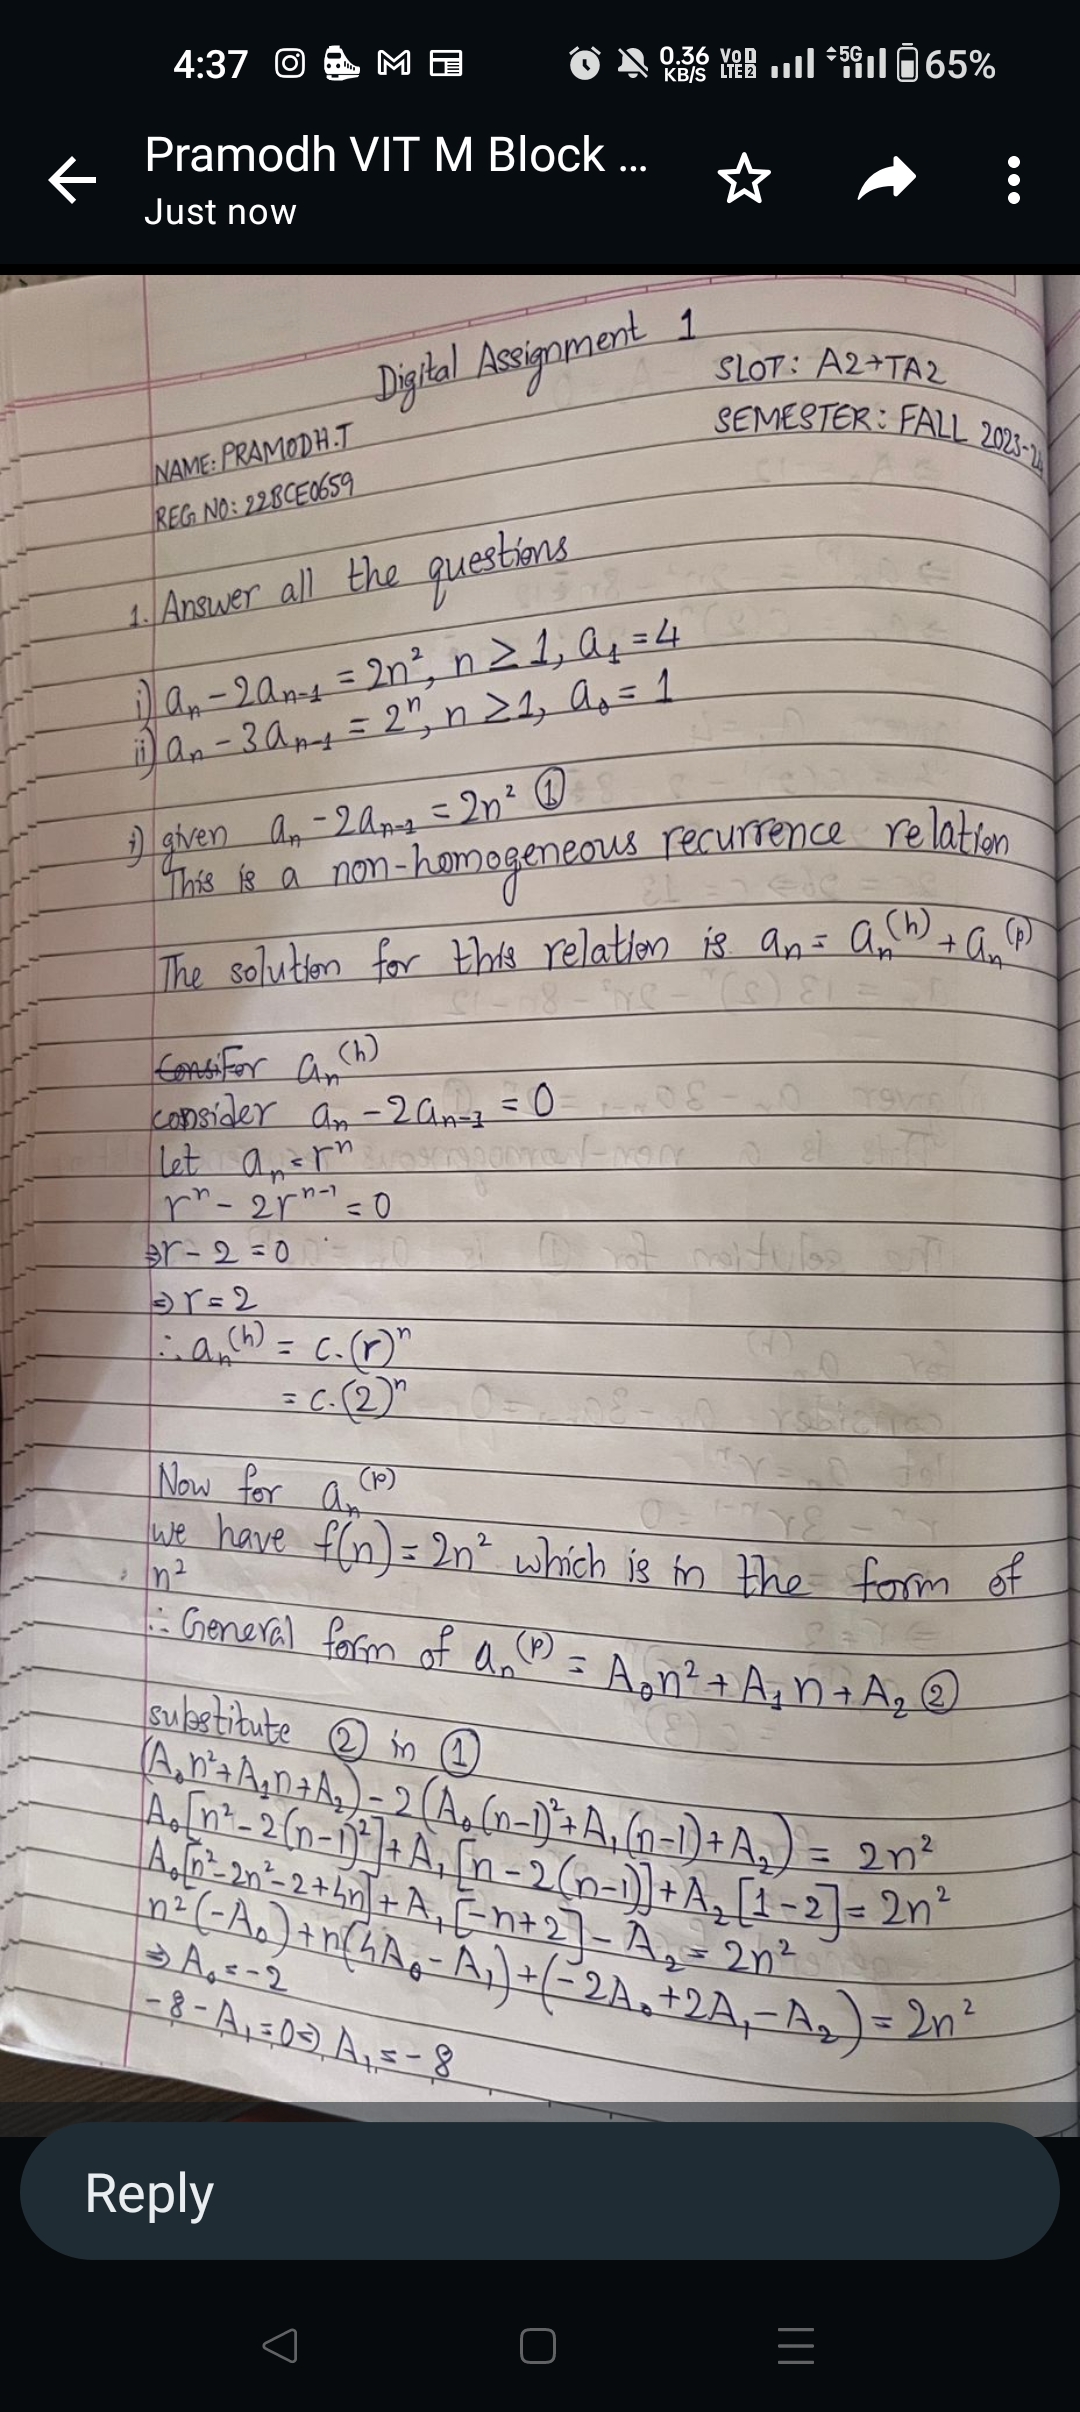 4:37 0.36 KB/S VoD LTE2 5G 65%
Pramodh VIT M Block ...
Just now
Digital Assignment 1
SLOT: A2+TA2
SEMESTER: FALL 2023-24
NAME: PRAMODH.T
REG NO: 22BCE0659
1. Answer all the questions
i) aₙ - 2aₙ₋₁ = 2n², n ≥ 1, a₁ = 4
ii) aₙ - 3aₙ₋₁ = 2ⁿ, n ≥ 1, a₀ = 1
i) given aₙ - 2aₙ₋₁ = 2n² ①
This is a non-homogeneous recurrence relation
The solution for this relation is aₙ = aₙ⁽ʰ⁾ + aₙ⁽ᵖ⁾
For aₙ⁽ʰ⁾
consider aₙ - 2aₙ₋₁ = 0
let aₙ = rⁿ
rⁿ - 2rⁿ⁻¹ = 0
⇒ r - 2 = 0
⇒ r = 2
∴ aₙ⁽ʰ⁾ = c.(r)ⁿ
= c.(2)ⁿ
Now for aₙ⁽ᵖ⁾
we have f(n) = 2n² which is in the form of
n²
∴ General form of aₙ⁽ᵖ⁾ = A₀n² + A₁n + A₂ ②
substitute ② in ①
(A₀n² + A₁n + A₂) - 2(A₀(n-1)² + A₁(n-1) + A₂) = 2n²
A₀[n² - 2(n-1)²] + A₁[n - 2(n-1)] + A₂[1-2] = 2n²
A₀[n² - 2n² - 2 + 4n] + A₁[-n+2] - A₂ = 2n²
n²(-A₀) + n(4A₀ - A₁) + (-2A₀ + 2A₁ - A₂) = 2n²
⇒ A₀ = -2
-8 - A₁ = 0 ⇒ A₁ = -8
Reply